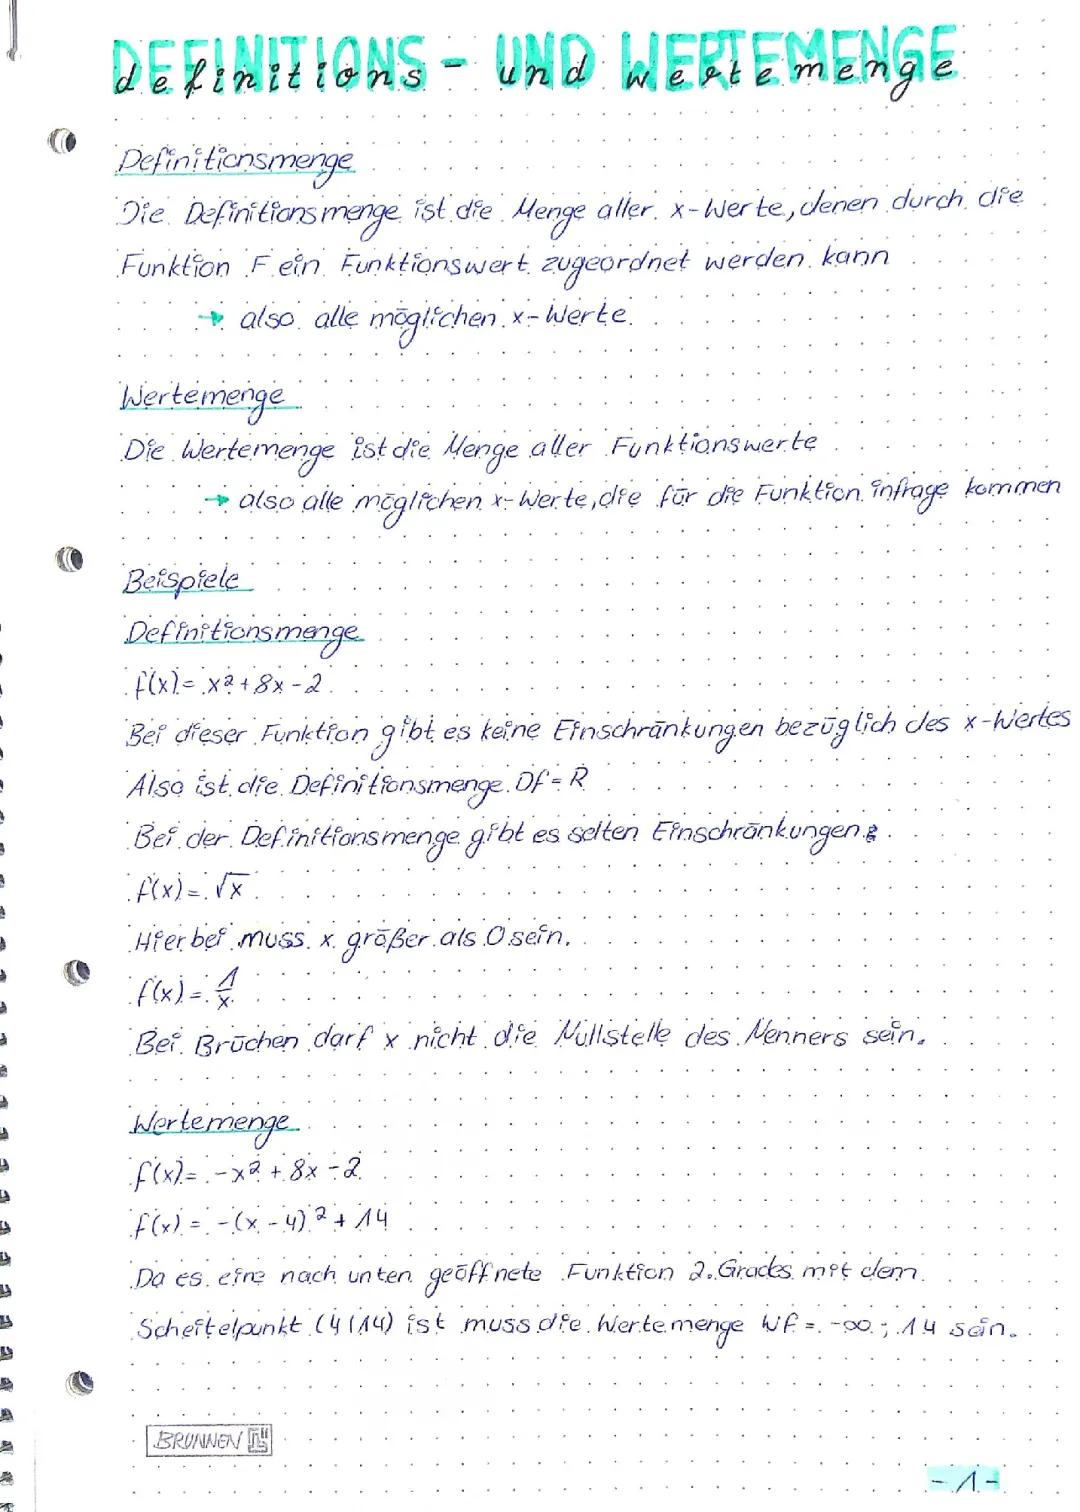 DEFINITIONS - UND WERTEMENGE
definitions - und wertemenge
Definitionsmenge
Die Definitionsmenge ist die Menge aller x-Werte, denen durch die
Funktion F ein Funktionswert zugeordnet werden kann
→ also alle möglichen x-Werte.
Wertemenge
Die Wertemenge ist die Menge aller Funktionswerte
→ also alle möglichen x-Werte, die für die Funktion infrage kommen
Beispiele
Definitionsmenge
f(x) = x² + 8x - 2
Bei dieser Funktion gibt es keine Einschränkungen bezüglich des x-Wertes
Also ist die Definitionsmenge Df = R
Bei der Definitionsmenge gibt es selten Einschränkungen:
f(x) = √x
Hierbei muss x größer als 0 sein.
f(x) = 1/x
Bei Brüchen darf x nicht die Nullstelle des Nenners sein.
Wertemenge
f(x) = -x² + 8x - 2
f(x) = -(x - 4)² + 14
Da es eine nach unten geöffnete Funktion 2. Grades mit dem
Scheitelpunkt (4|14) ist muss die Wertemenge Wf = -∞ ; 14 sein.
BRUNNEN
- 1 -